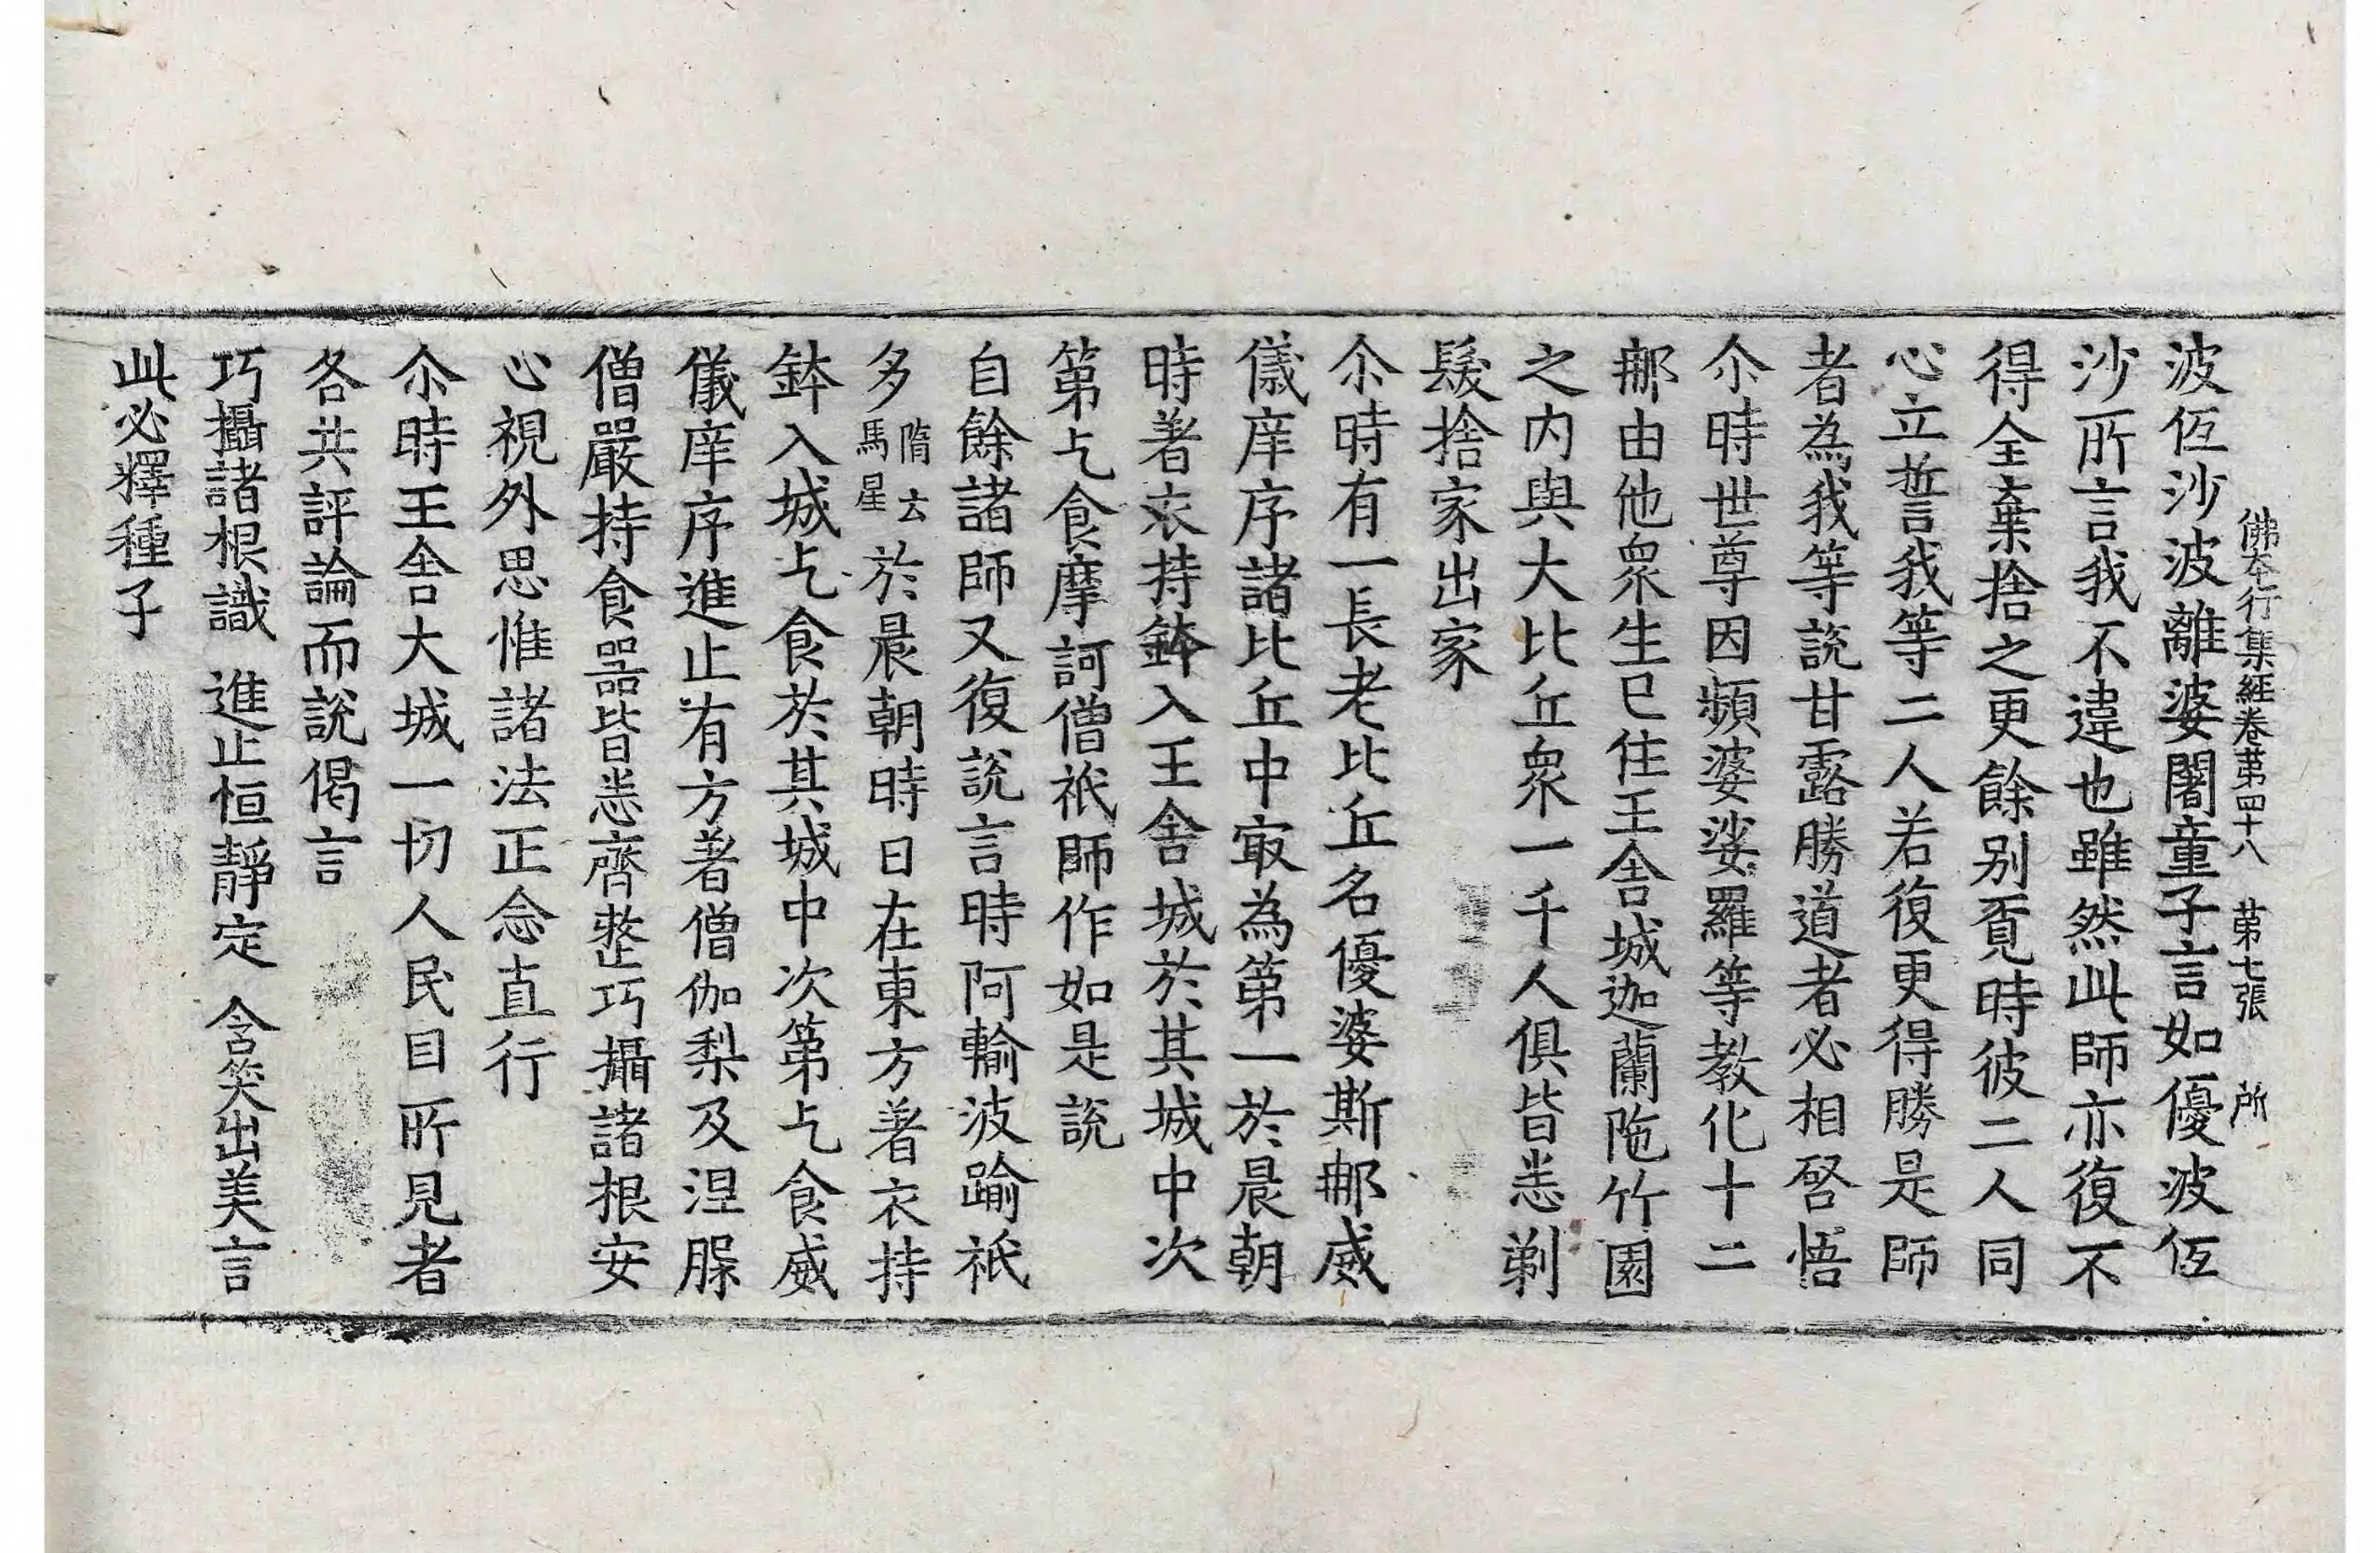 佛本行集經卷苐四十八　苐七張　所
波低沙波離婆闍童子言如優波低
沙所言我不違也雖然此師亦復不
得全棄捨之更餘别覓時彼二人同
心立誓言我等二人若復更得勝是師
者為我等說甘露勝道者必相啓悟
尒時世尊因頻婆娑羅等教化十二
那由他眾生已住王舍城迦蘭陁竹園
之内與大比丘眾一千人俱皆悉剃
髮捨家出家
尒時有一長老比丘名優婆斯那威
儀庠序諸比丘中㝡為第一於晨朝
時著衣持鉢入王舍城於其城中次
第乞食摩訶僧祇師作如是說
自餘諸師又復說言時阿輸波踰祇
多隋云馬星於晨朝時日在東方著衣持
鉢入城乞食於其城中次第乞食威
儀庠序進止有方著僧伽梨及涅𦙶
僧嚴持食器皆悉齊整巧攝諸根安
心視外思惟諸法正念直行
尒時王舍大城一切人民目所見者
各共評論而說偈言
巧攝諸根識　進止恒靜定　含笑出美言
此必釋種子